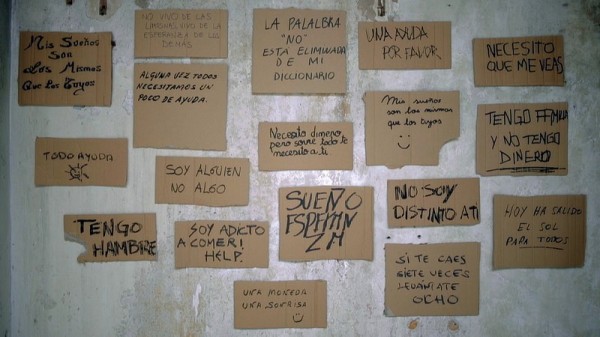 Mis Sueños
son
Los Mismos
Que los Tuyos
NO VIVO DE LAS
LIMOSNAS, VIVO DE LA
ESPERANZA DE LOS
DEMÁS
LA PALALBRA
"NO"
ESTA ELIMINADA
DE MI
DICCIONARIO
UNA AYUDA
POR FAVOR
NECESITO
QUE ME VEAS
ALGUNA VEZ TODOS
NECESITAMOS UN
POCO DE AYUDA.
Mis sueños
son los mismos
que los tuyos
TENGO
Y NO TENGO
DINERO
Necesito dinero,
pero sobre todo te
necesito a ti
TODO AYUDA
SOY ALGUIEN
NO ALGO
SUEÑO
ESPERAN
ZA
NO SOY
DISTINTO A TI
HOY HA SALIDO
EL SOL
PARA TODOS
TENGO
HAMBRE
SOY ADICTO
A COMER!
HELP.
SI TE CAES
SIETE VECES
LEVÁNTATE
OCHO
UNA MONEDA
UNA SONRISA